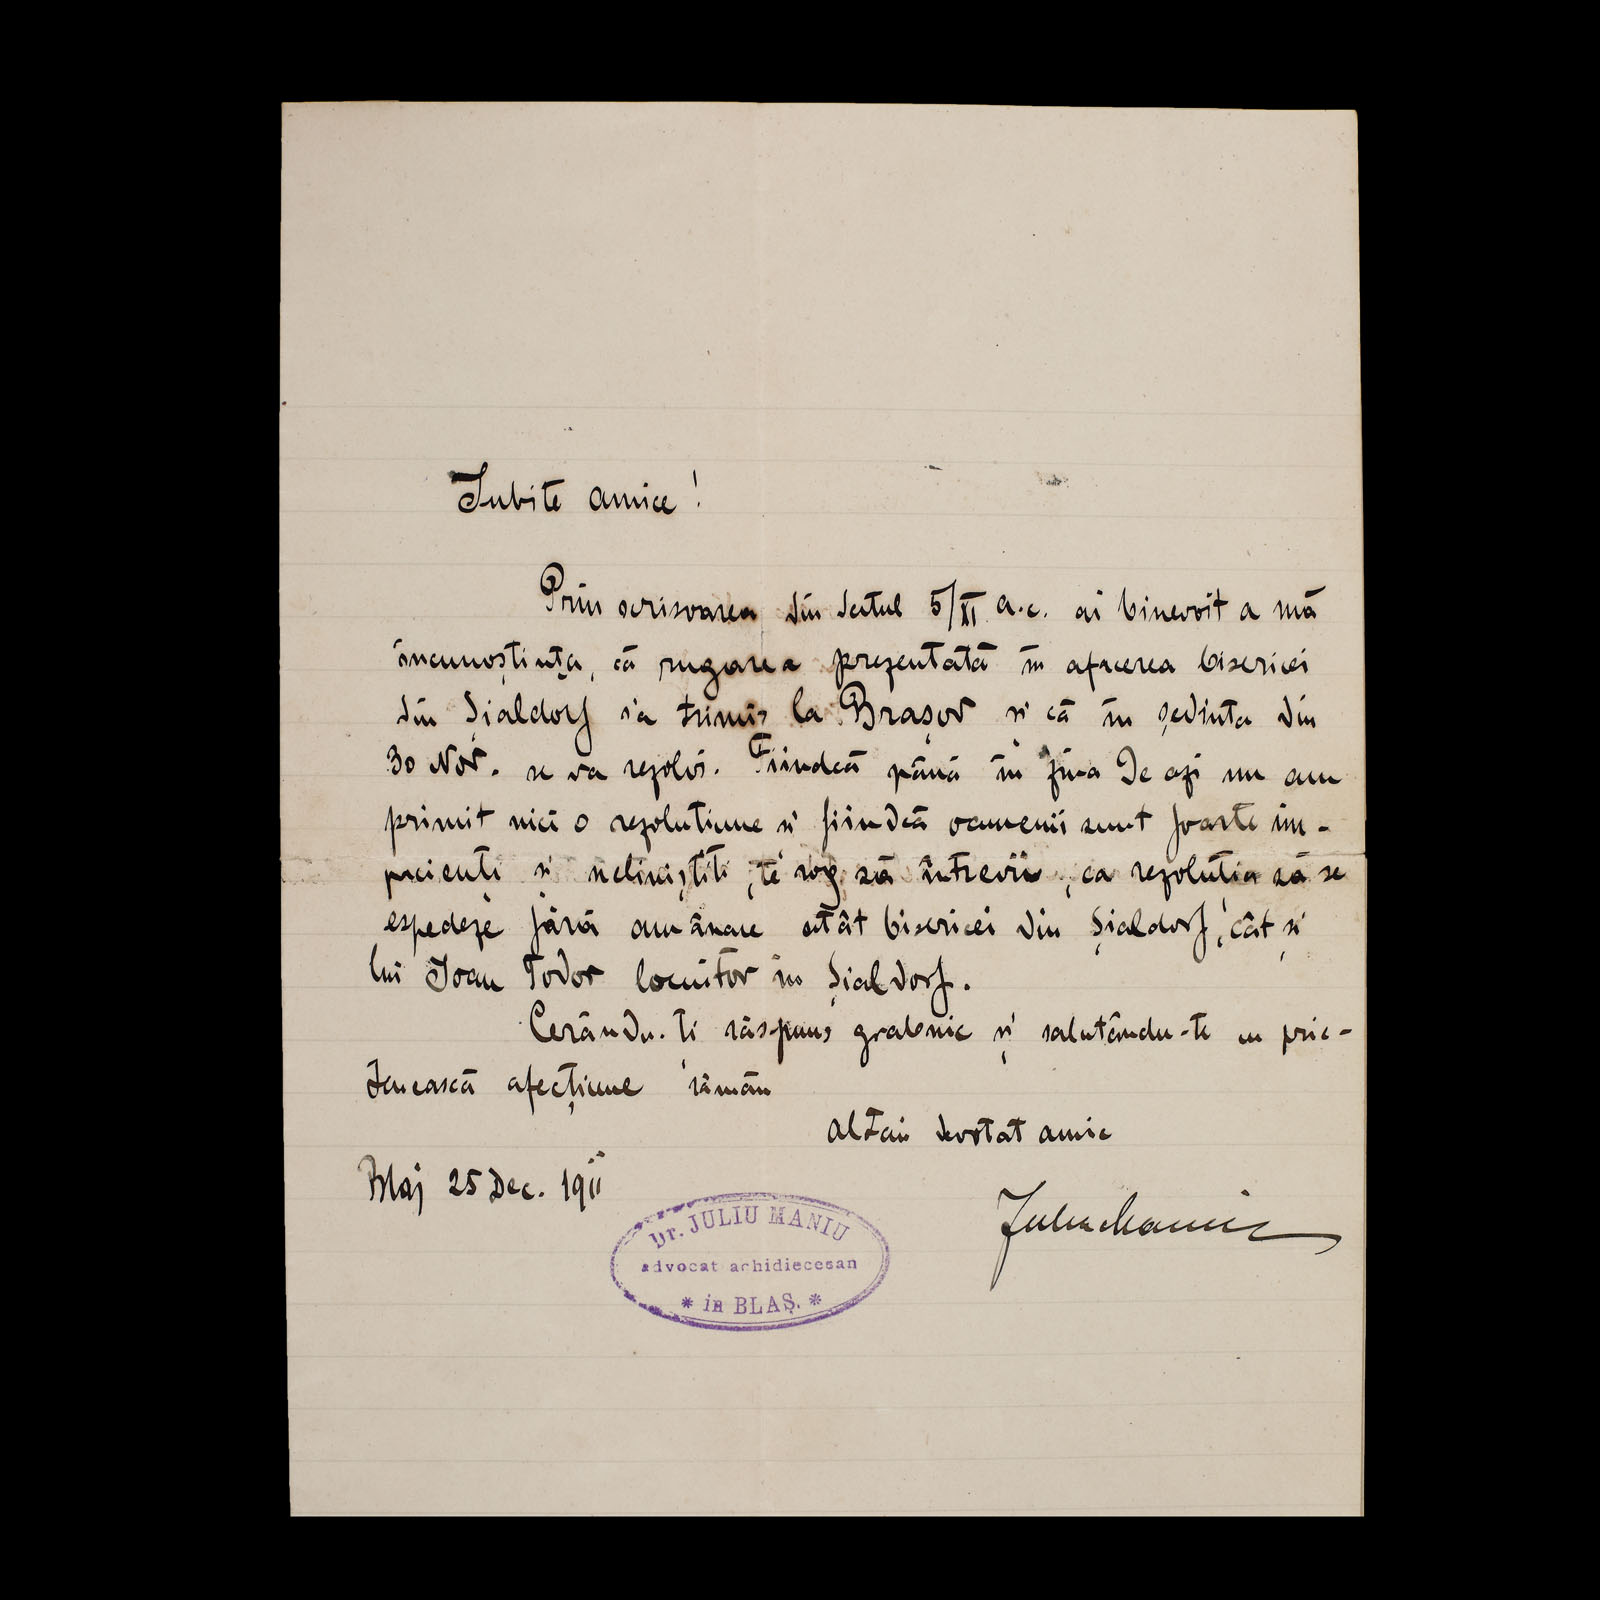 Iubite amice!
Prin scrisoarea din datul 5/XI a.c. ai binevoit a mă
încunoștința, că rugarea prezentată în afacerea bisericei
din Șialdorf s'a trimis la Brașov și că în ședința din
30 Nov. se va rezolvi. Fiindcă până în ziua de azi nu am
primit nici o rezoluțiune și fiindcă oamenii sunt foarte im-
pacienți și neliniștiți, te rog să întrevii, ca rezoluția să se
espedeze fără amânare atât bisericei din Șialdorf, cât și
lui Ioan Todor locuitor în Șialdorf.
Cerându-ți răspuns grabnic și salutându-te cu prie-
tenească afecțiune rămân
al tău devotat amic
Blaj 25 Dec. 1911
Juliu Maniu
Dr. JULIU MANIU
advocat achidiecesan
* in BLAȘ. *